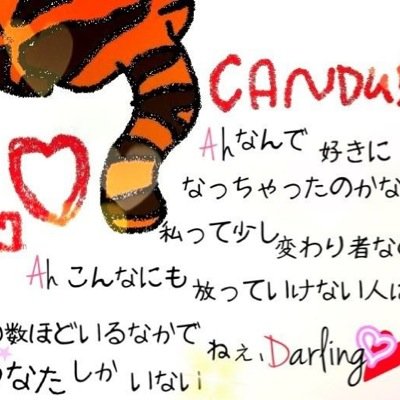 CANDU
Ahなんで 好きに
なっちゃったのかな
私って少し変わり者な
Ah こんなにも 放っていけない人に
数ほどいるなかで
ねぇ、Darling
なたしか いない